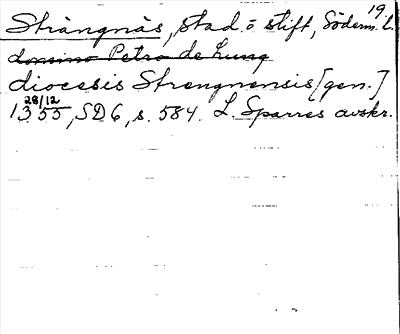 19
Strängnäs, stad o stift, Söderm. l.
domino Petro de Lung
diocesis Strengnensis [gen.]
28/12
1355, SD 6, s. 584. L. Sparres avskr.